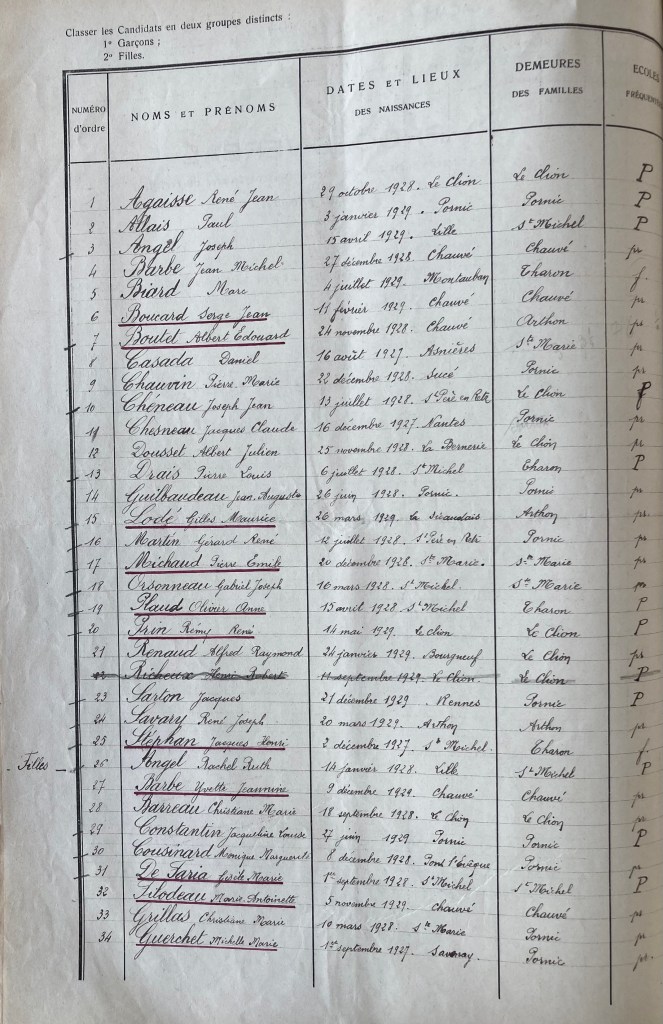 Classer les Candidats en deux groupes distincts :
1º Garçons ;
2º Filles.
NUMÉRO d'ordre NOMS ET PRÉNOMS DATES ET LIEUX DES NAISSANCES DEMEURES DES FAMILLES
1 Agaisse René Jean 29 octobre 1928. Le Clion Le Clion P
2 Allais Paul 3 janvier 1929. Pornic Pornic P
3 Angel Joseph 15 avril 1929. Lille St Michel P
4 Barbe Jean Michel 27 décembre 1928. Chauvé Chauvé pr
5 Biard Marc 4 juillet 1929. Montauban Tharon f.
6 Boucard Serge Jean 11 février 1929. Chauvé Chauvé pr
7 Boutet Albert Edouard 24 novembre 1928. Chauvé Arthon pr
8 Casada Daniel 16 août 1927. Asnières Ste Marie pr
9 Chauvin Pierre Marie 22 décembre 1928. Sucé Pornic pr
10 Chéneau Joseph Jean 13 juillet 1928. St Père en Retz Le Clion
11 Chesneau Jacques Claude 16 décembre 1927. Nantes Pornic pr
12 Dousset Albert Julien 25 novembre 1928. La Bernerie Le Clion pr
13 Drais Pierre Louis 6 juillet 1928. St Michel Tharon P
14 Guilbaudeau Jean Auguste 26 juin 1928. Pornic. Pornic pr
15 Lodé Gilles Maurice 26 mars 1929. La Sicaudais Arthon pr.
16 Martin Gérard René 12 juillet 1928. St Père en Retz Pornic pr
17 Michaud Pierre Emile 20 décembre 1928. Ste Marie. Ste Marie pr
18 Orsonneau Gabriel Joseph 16 mars 1928. St Michel Ste Marie pr
19 Plaud Olivier Anne 15 avril 1928. St Michel Tharon P
20 Prin Rémy René 14 mai 1929. Le Clion Le Clion P
21 Renaud Alfred Raymond 24 janvier 1929. Bourgneuf Le Clion pr
22 Richeux Henri Robert 11 septembre 1929. Le Clion Le Clion P
23 Sarton Jacques 21 décembre 1929. Rennes Pornic P
24 Savary René Joseph 20 mars 1929. Arthon Arthon pr
25 Stéphan Jacques Henri 2 décembre 1927. St Michel. Tharon f.
Filles 26 Angel Rachel Ruth 14 janvier 1928. Lille St Michel P
27 Barbe Yvette Jeannine 9 décembre 1929. Chauvé Chauvé pr
28 Barreau Christiane Marie 18 septembre 1928. Le Clion Le Clion pr
29 Constantin Jacqueline Louise 27 juin 1929 Pornic Pornic P
30 Cousinard Monique Marguerite 8 décembre 1928. Pont l'Évêque Pornic pr
31 De Faria Gisèle Marie 1er septembre 1928. St Michel St Michel P
32 Filodeau Marie Antoinette 5 novembre 1929. Chauvé Chauvé pr
33 Grillas Christiane Marie 10 mars 1928. Ste Marie Pornic pr
34 Guerchet Michelle Marie 1er septembre 1927. Savenay Pornic pr.